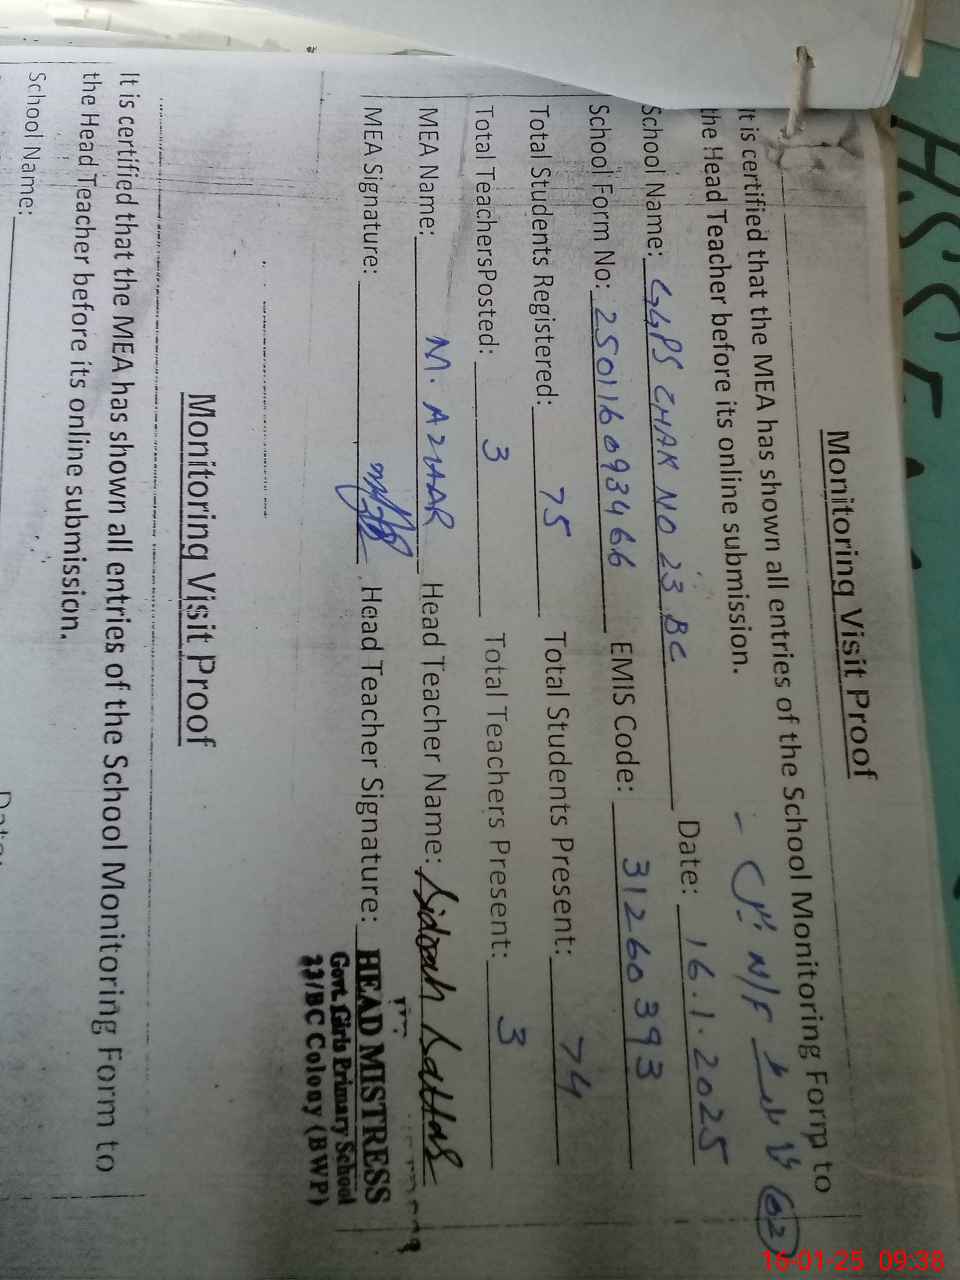 Monitoring Visit Proof
It is certified that the MEA has shown all entries of the School Monitoring Form to
the Head Teacher before its online submission.
N/F 62
School Name: GGPS CHAK NO 23 BC Date: 16.1.2025
School Form No: 250116093466 EMIS Code: 31260393
Total Students Registered: 75 Total Students Present: 74
Total TeachersPosted: 3 Total Teachers Present: 3
MEA Name: M. AZHAR Head Teacher Name:
MEA Signature: Head Teacher Signature: HEAD MISTRESS
Govt. Girls Primary School
23/BC Colony (BWP)
Monitoring Visit Proof
It is certified that the MEA has shown all entries of the School Monitoring Form to
the Head Teacher before its online submission.
School Name:
16-01-25 09:38